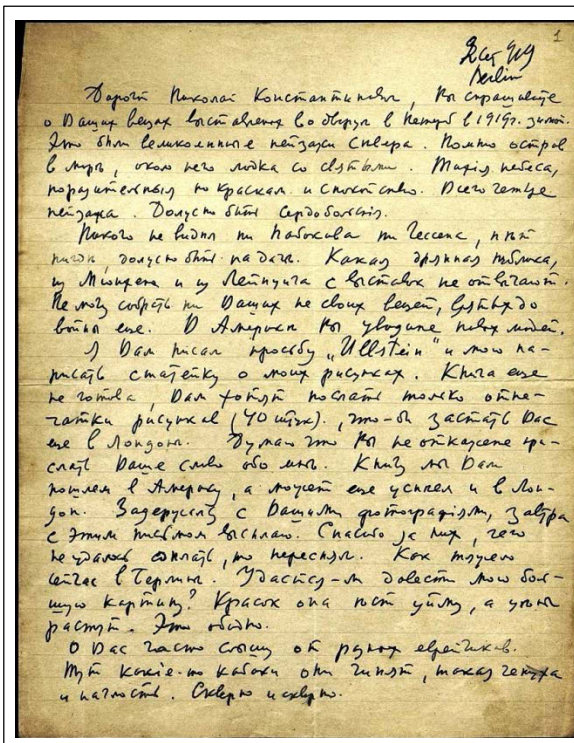 1
Berlin
Дорогой Николай Константинович, Вы спрашиваете
о Ваших вещах выставленных во дворце в 1919г. зимой.
Это были великолепные пейзажи севера. Помню остров
в море, около него лодка со святыми. небеса,
поразительных по краскам и спокойствию. Всего четыре
пейзажа. Должно быть
Никого не видел ни Набокова ни Гессена, нет
никого, должно быть на даче. Какая дрянная публика,
из Мюнхена и из Лейпцига с выставок не отвечают.
Не могу собрать ни Ваших не своих вещей, взятых до
войны еще. В Америке Вы увидите новых людей.
Я Вам писал просьбу „Ullstein" и мою на-
писать статейку о моих рисунках. Книга еще
не готова, Вам хотят послать только отпе-
чатки рисунков (40 штук), что-бы застать Вас
еще в Лондоне. Думаю что Вы не откажете при-
слать Ваше слово обо мне. Книгу мы Вам
пошлем в Америку, а может еще успеем и в Лон-
дон. Задержусь с Вашими фотографиями, завтра
с этим письмом высылаю. Спасибо за них, чего
не удалось, то переснял. Как
сейчас в Берлине. Удастся-ли довести мою боль-
шую картину? Красок она ест уйму, а цены
растут. Это обидно.
О Вас часто слышу от разных еврейчиков.
Тут какие-то кабаки они чинят, такая чепуха
и наглость. Скверно и скверно.